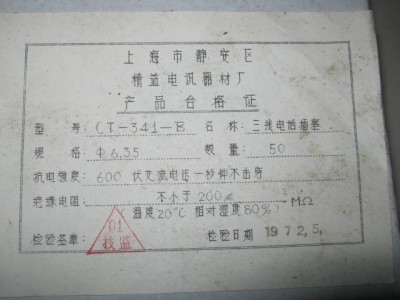 上海市静安区
精益电讯器材厂
产品合格证
型号：CT-341-B 名称：三线电话插塞
规格 Φ6.35 数量：50
抗电强度：600伏交流电压一秒钟不击穿
绝缘电阻：不小于200 MΩ
(温度20℃ 相对湿度80%)
检验盖章： 01 技监 检验日期 1972,5,